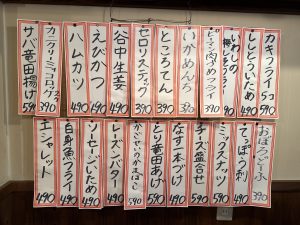 カキフライ 5コ 590
ししとういため 390
いわしの梅しそフライ 490
ピーマン肉づめフライ 390
いかめんち 390
ところてん 390
セロリスティック 390
谷中生姜 490
えびかつ 490
ハムカツ 490
カニクリーミーコロッケ 390
サバ竜田揚げ 590
おぼろどうふ 390
てっぽう刺 490
ミックスナッツ 390
チーズ盛合せ 590
なす一本づけ 490
とり竜田あげ 490
レーズンバター 490
ソーセージいため 490
白身魚フライ 490
エシャレット 490